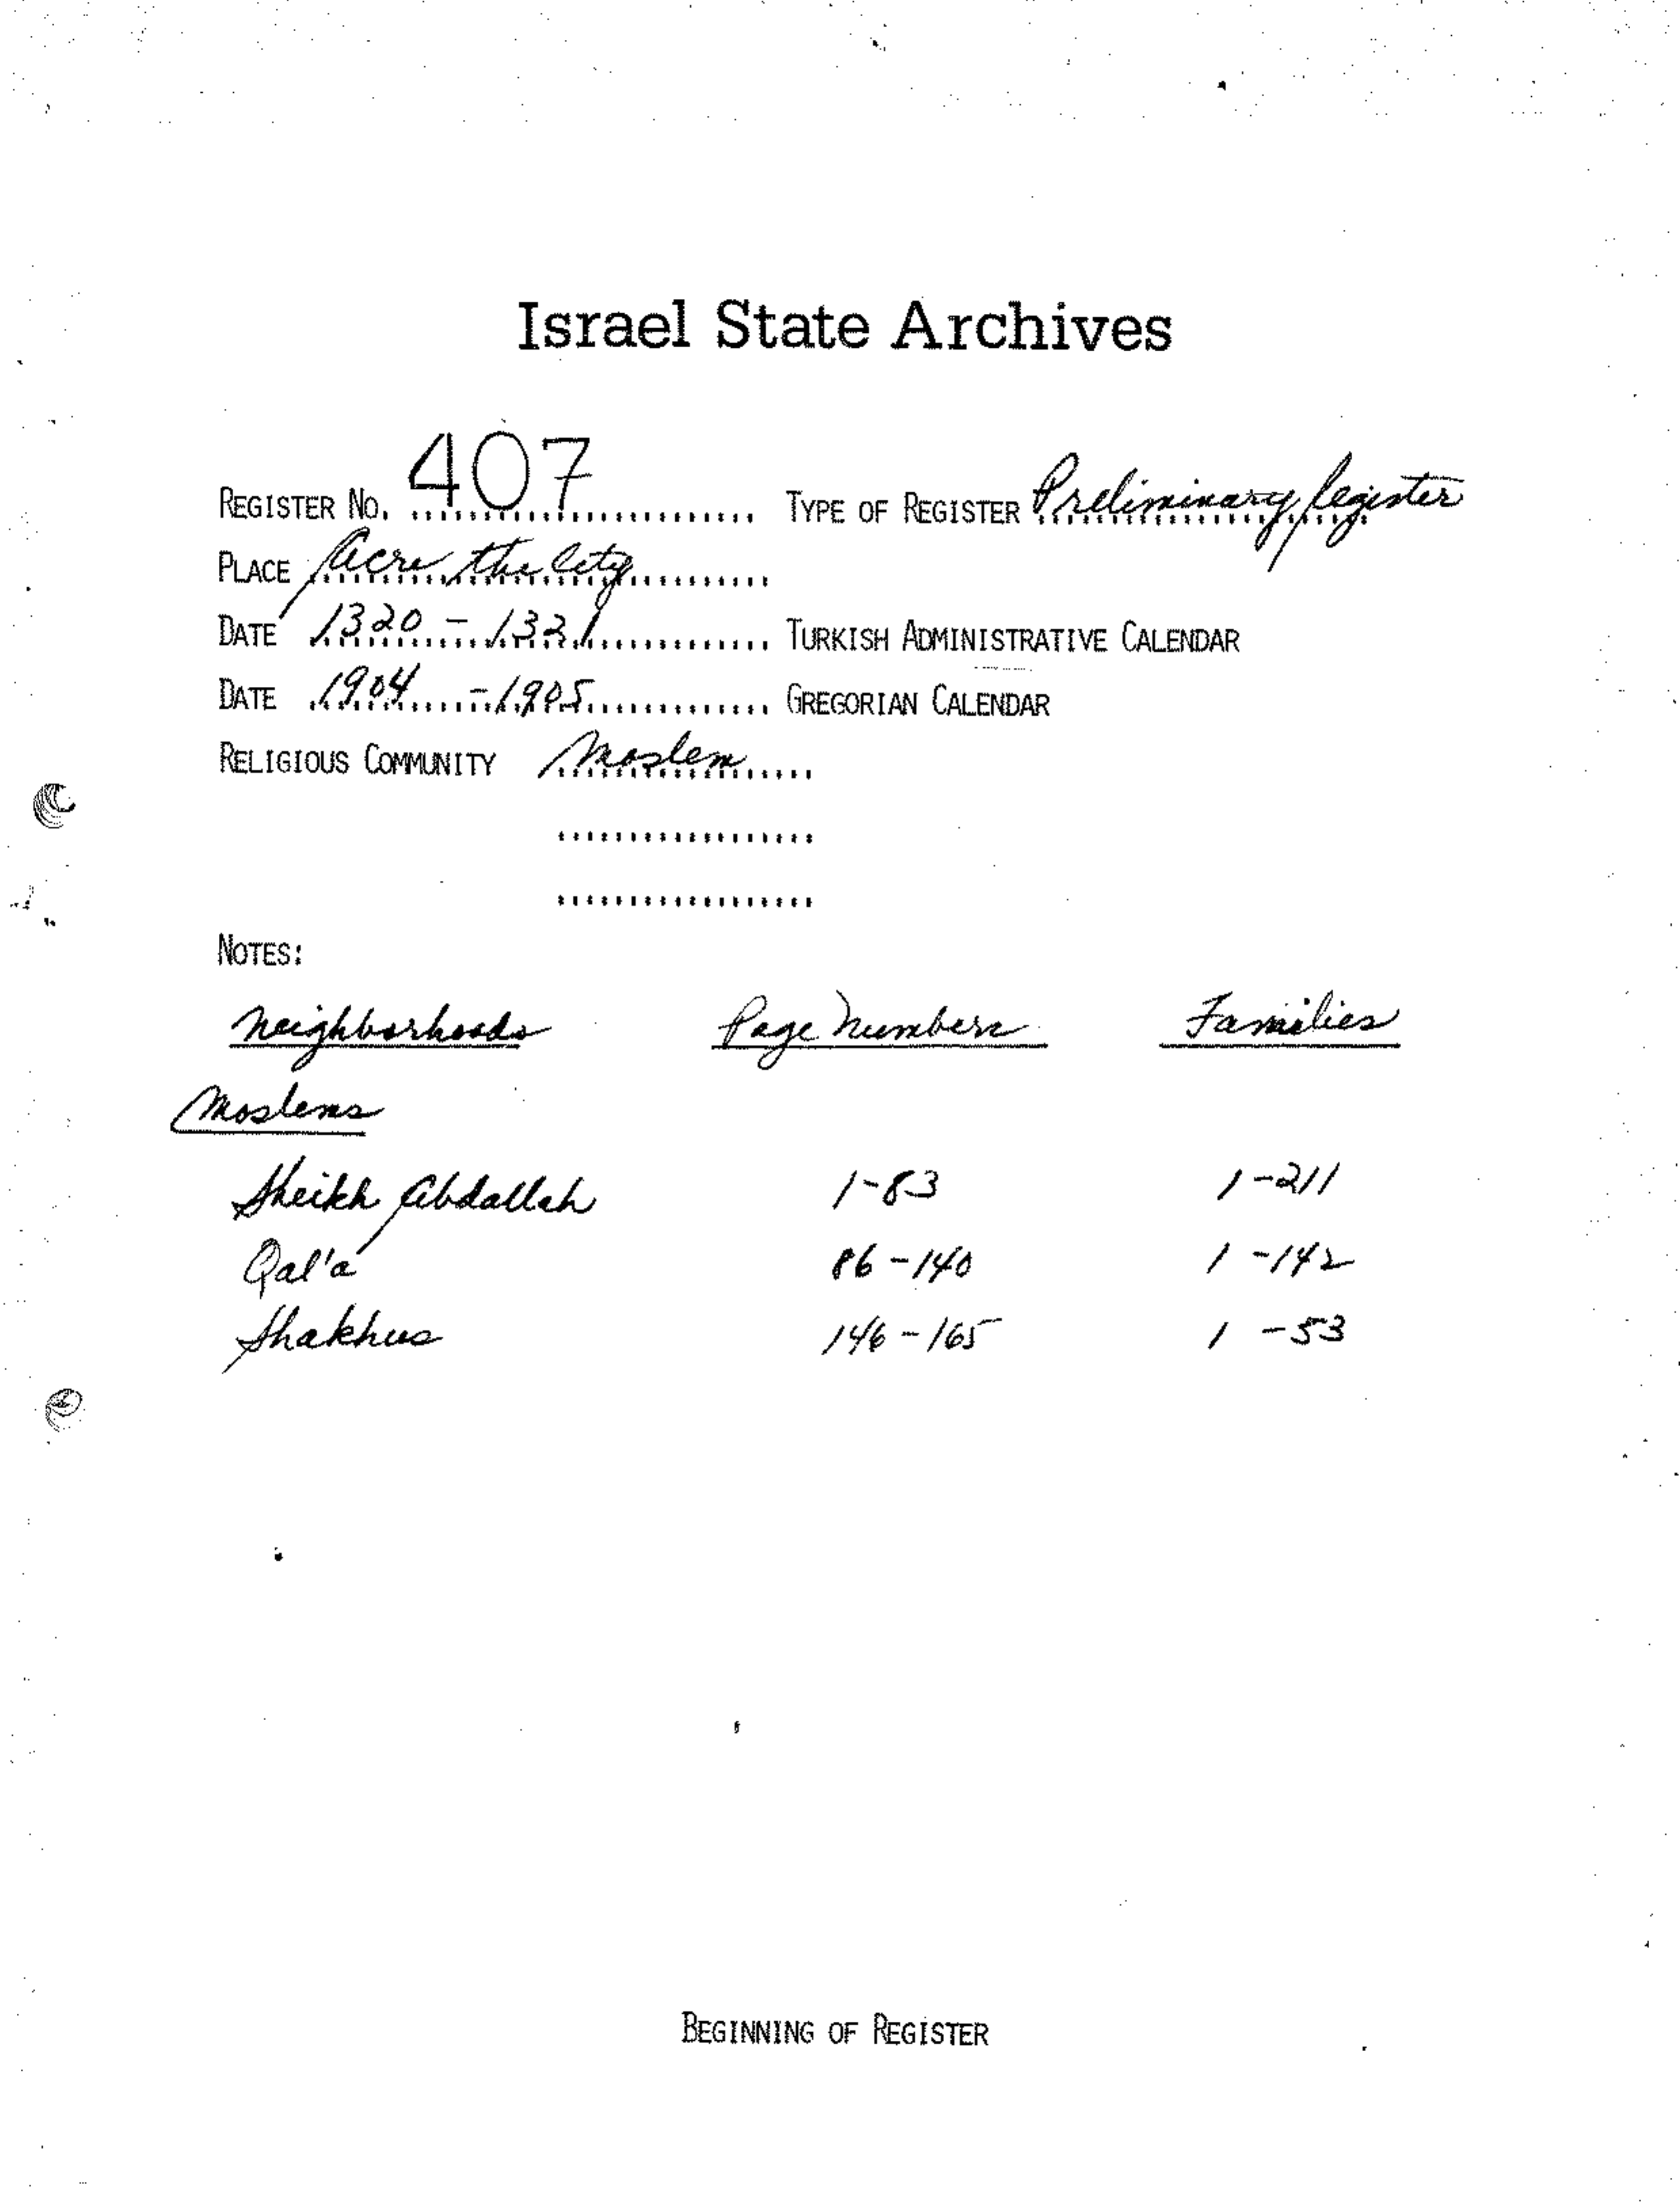 Israel State Archives
REGISTER NO. 407 TYPE OF REGISTER Preliminary Register
PLACE Acre the City
DATE 1320 - 1321 TURKISH ADMINISTRATIVE CALENDAR
DATE 1904 - 1905 GREGORIAN CALENDAR
RELIGIOUS COMMUNITY Moslem
NOTES:
Neighborhoods Page Numbers Families
Moslems
Sheikh Abdallah 1-83 1-211
Qal'a 86-140 1-142
Shakhus 146-165 1-53
BEGINNING OF REGISTER